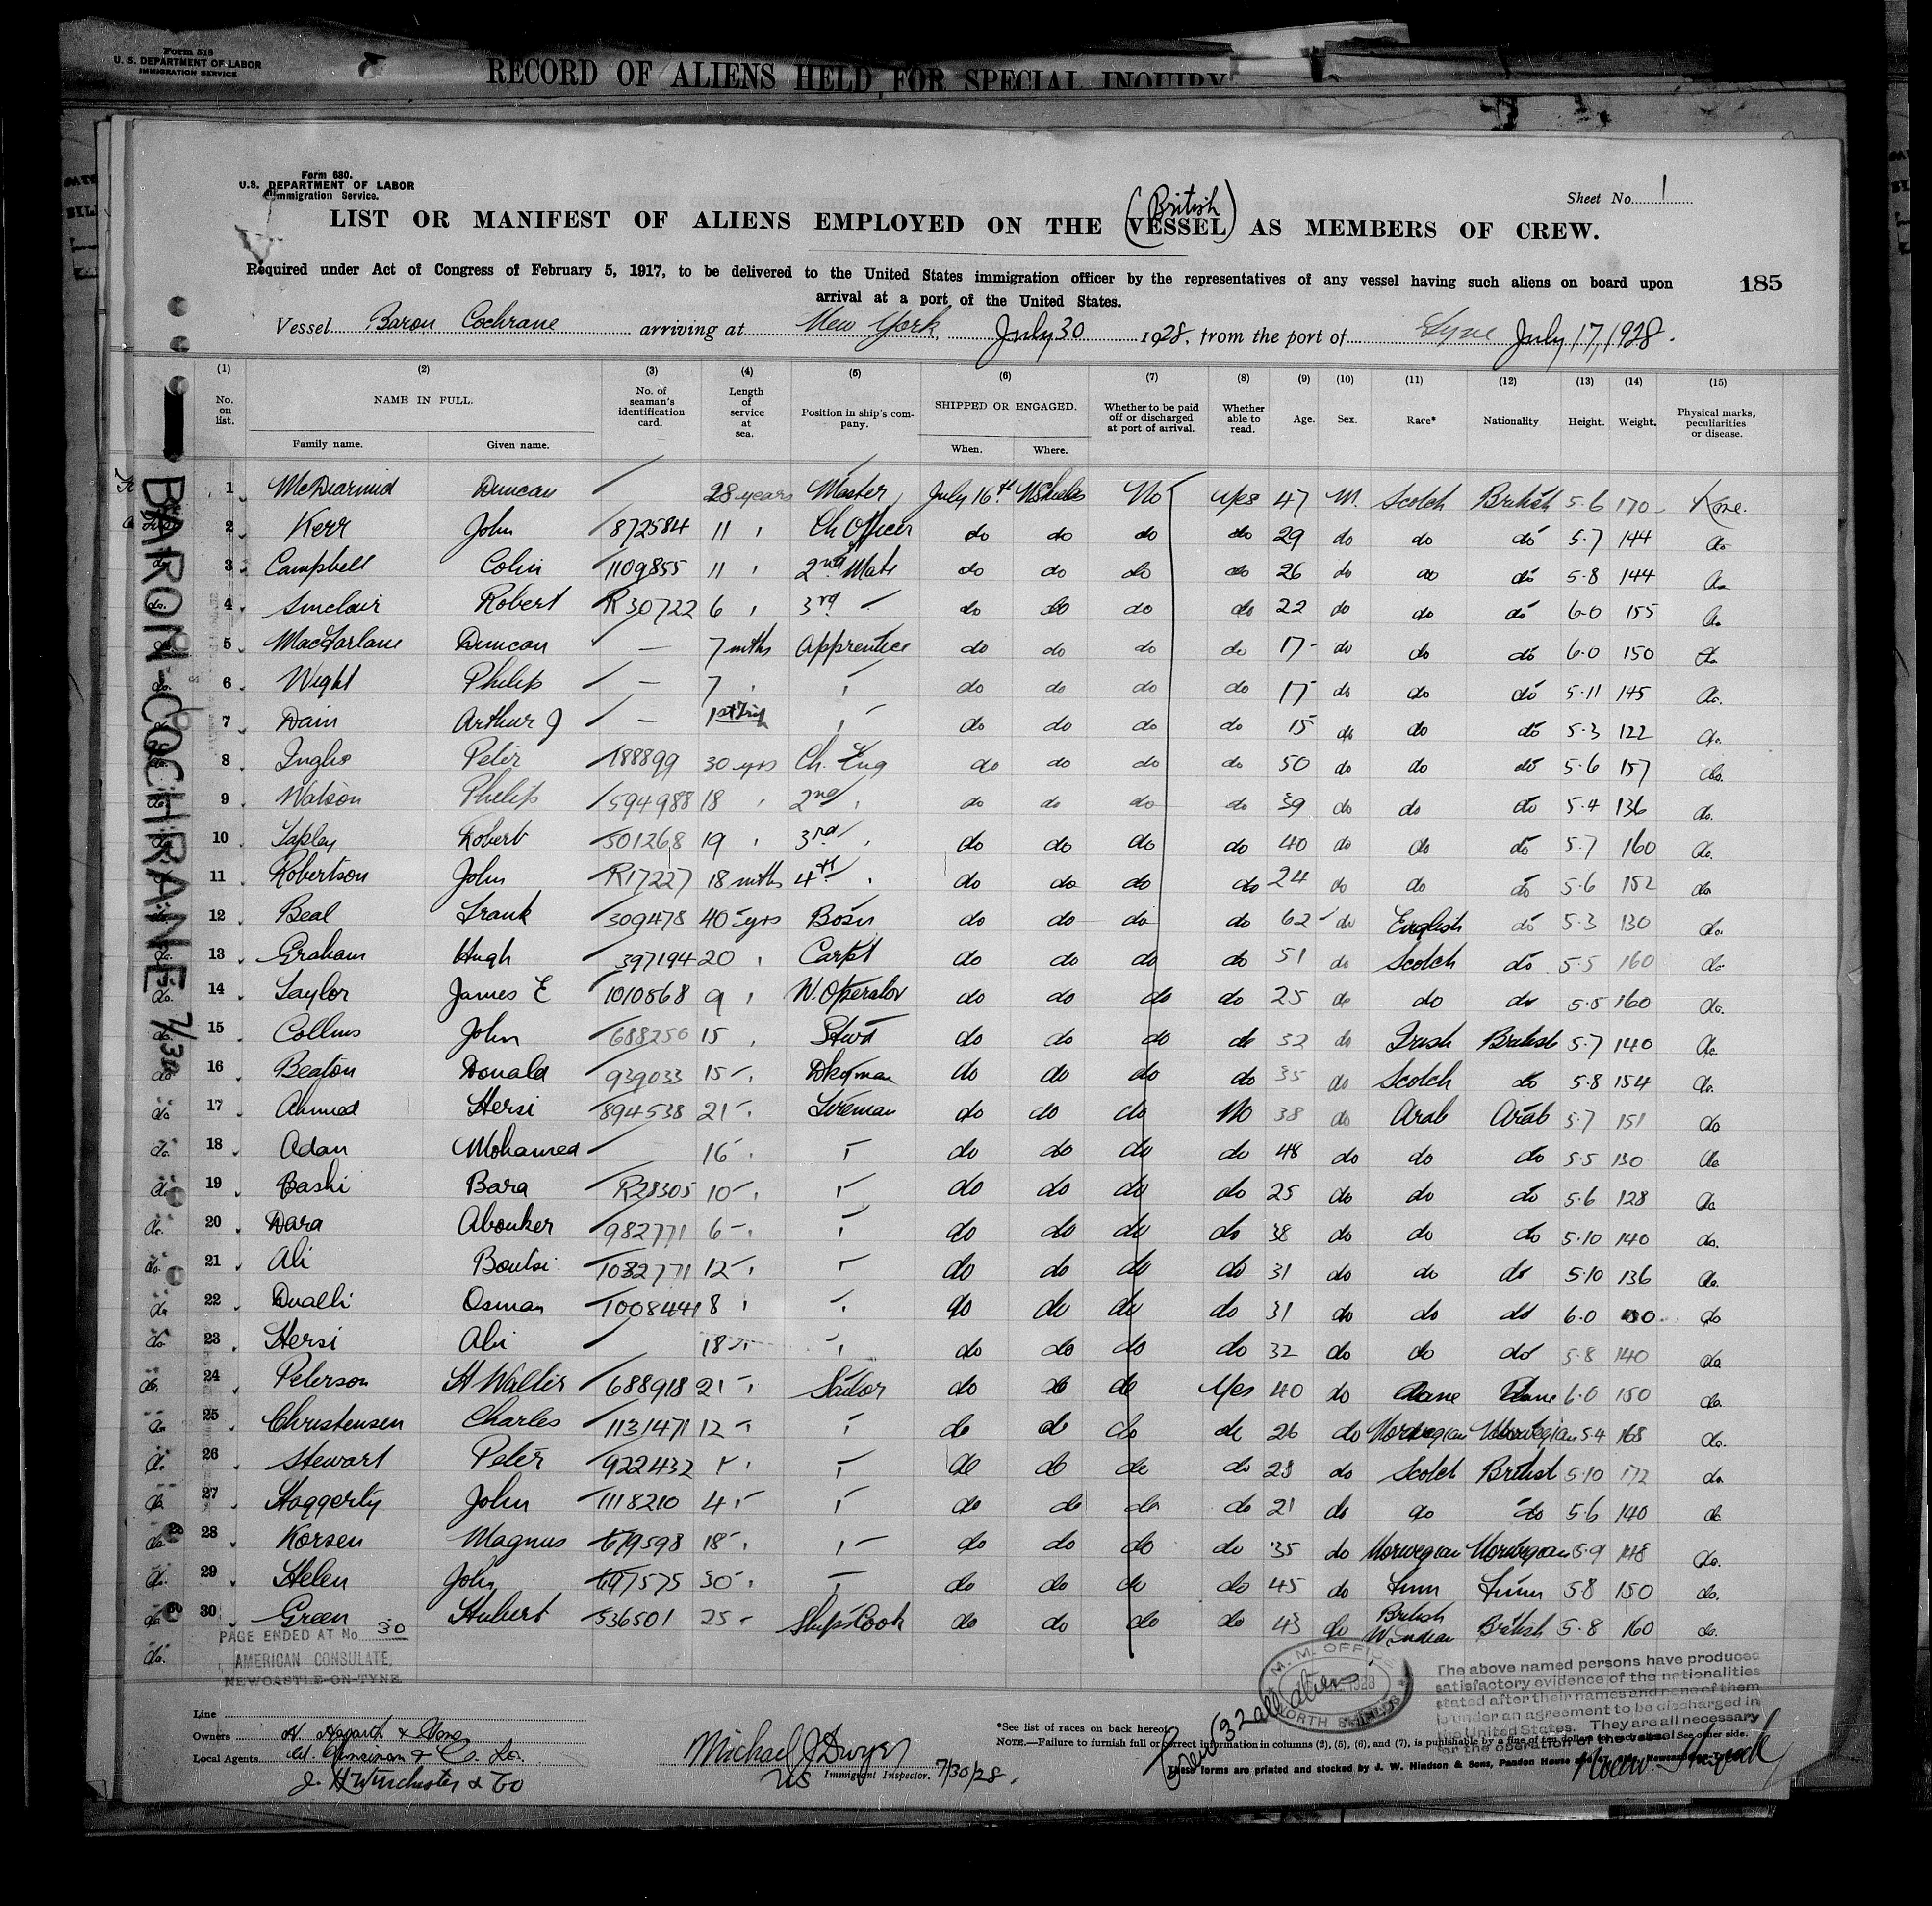 Form 518
U. S. DEPARTMENT OF LABOR
IMMIGRATION SERVICE
RECORD OF ALIENS HELD FOR SPECIAL INQUIRY
Form 680.
U.S. DEPARTMENT OF LABOR
Immigration Service.
Sheet No. 1
(British)
LIST OR MANIFEST OF ALIENS EMPLOYED ON THE VESSEL AS MEMBERS OF CREW.
Required under Act of Congress of February 5, 1917, to be delivered to the United States immigration officer by the representatives of any vessel having such aliens on board upon
arrival at a port of the United States.
185
Vessel Baron Cochrane arriving at New York, July 30 1928, from the port of Tyne July 17, 1928.
(1) (2) (3) (4) (5) (6) (7) (8) (9) (10) (11) (12) (13) (14) (15)
No. on list. NAME IN FULL. No. of seaman's identification card. Length of service at sea. Position in ship's company. SHIPPED OR ENGAGED. Whether to be paid off or discharged at port of arrival. Whether able to read. Age. Sex. Race* Nationality Height. Weight. Physical marks, peculiarities or disease.
Family name. Given name. When. Where.
BARON COCHRANE 7/30
1 McDiarmid Duncan 28 years Master July 16th N Shields No Yes 47 M. Scotch British 5.6 170 None.
2 Kerr John 872584 11 " Ch Officer do do do do 29 do do do 5.7 144 do
3 Campbell Colin 1109855 11 " 2nd Mate do do do do 26 do do do 5.8 144 do
4 Sinclair Robert R30722 6 " 3rd " do do do do 22 do do do 6.0 155 do
5 MacFarlane Duncan — 7 mths Apprentice do do do do 17 do do do 6.0 150 do
6 Wight Philip — 7 " " do do do do 17 do do do 5.11 145 do.
7 Dain Arthur J — 1st Trip " do do do do 15 do do do 5.3 122 do.
8 Inglis Peter 188899 30 yrs Ch. Eng do do do do 50 do do do 5.6 157 do.
9 Watson Philip 594988 18 " 2nd " do do do do 39 do do do 5.4 136 do.
10 Tapley Robert 501268 19 " 3rd " do do do do 40 do do do 5.7 160 do.
11 Robertson John R17227 18 mths 4th " do do do do 24 do do do 5.6 152 do
12 Beal Frank 309478 40 yrs Bosn do do do do 62 do English do 5.3 130 do.
13 Graham Hugh 397194 20 " Carpt do do do do 51 do Scotch do 5.5 160 do
14 Taylor James E 1010568 9 " W. Operator do do do do 25 do do do 5.5 160 do.
15 Collins John 688250 15 " Stwd do do do do 32 do Irish British 5.7 140 do.
16 Beaton Donald 939033 15 " Dkyman do do do do 35 do Scotch do 5.8 154 do.
17 Ahmed Hersi 894538 21 " Fireman do do do No 38 do Arab Arab 5.7 151 do
18 Adan Mohamed 16 " " do do do do 48 do do do 5.5 130 do
19 Bashi Bara R28305 10 " " do do do do 25 do do do 5.6 128 do
20 Dara Abouker 982771 6 " " do do do do 38 do do do 5.10 140 do.
21 Ali Boulsi 1082771 12 " " do do do do 31 do do do 5.10 136 do.
22 Dualli Osman 1008441 8 " " do do do do 31 do do do 6.0 do
23 Hersi Ali 18 " " do do do do 32 do do do 5.8 140 do
24 Peterson H Walter 688918 21 " Sailor do do do Yes 40 do Dane Dane 6.0 150 do.
25 Christensen Charles 1131471 12 " " do do do do 26 do Norwegian Norwegian 5.4 168 do.
26 Stewart Peter 922432 " " do do do do 28 do Scotch British 5.10 172 do
27 Haggerty John 1118210 4 " " do do do do 21 do do do 5.6 140 do
28 Korsen Magnus 679598 18 " " do do do do 35 do Norwegian Norwegian 5.9 148 do.
29 Helen John 697575 30 " " do do do do 45 do Finn Finn 5.8 150 do.
30 Green Hubert 536501 25 " Ship's Cook do do do do 43 do British W. Indian British 5.8 160 do.
PAGE ENDED AT No 30
AMERICAN CONSULATE,
NEWCASTLE-ON-TYNE.
M. M. OFFICE 1928 NORTH SHIELDS
The above named persons have produced
satisfactory evidence of the nationalities
stated after their names and none of them
is under an agreement to be discharged in
the United States. They are all necessary
for the operation of the vessel.
Crew (32 all aliens)
Line
Owners H. Hogarth & Sons
Local Agents
J. H Winchester & Co
Michael J Dwyer
US Immigrant Inspector. 7/30/28.
*See list of races on back hereof.
NOTE.—Failure to furnish full or correct information in columns (2), (5), (6), and (7), is punishable by a fine of ten dollars for each alien. See other side.
These forms are printed and stocked by J. W. Hindson & Sons, Pandon House